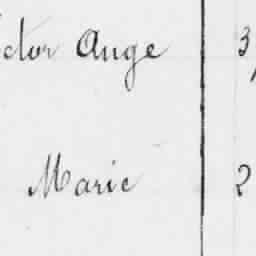 ctor Ange 3
Marie 2